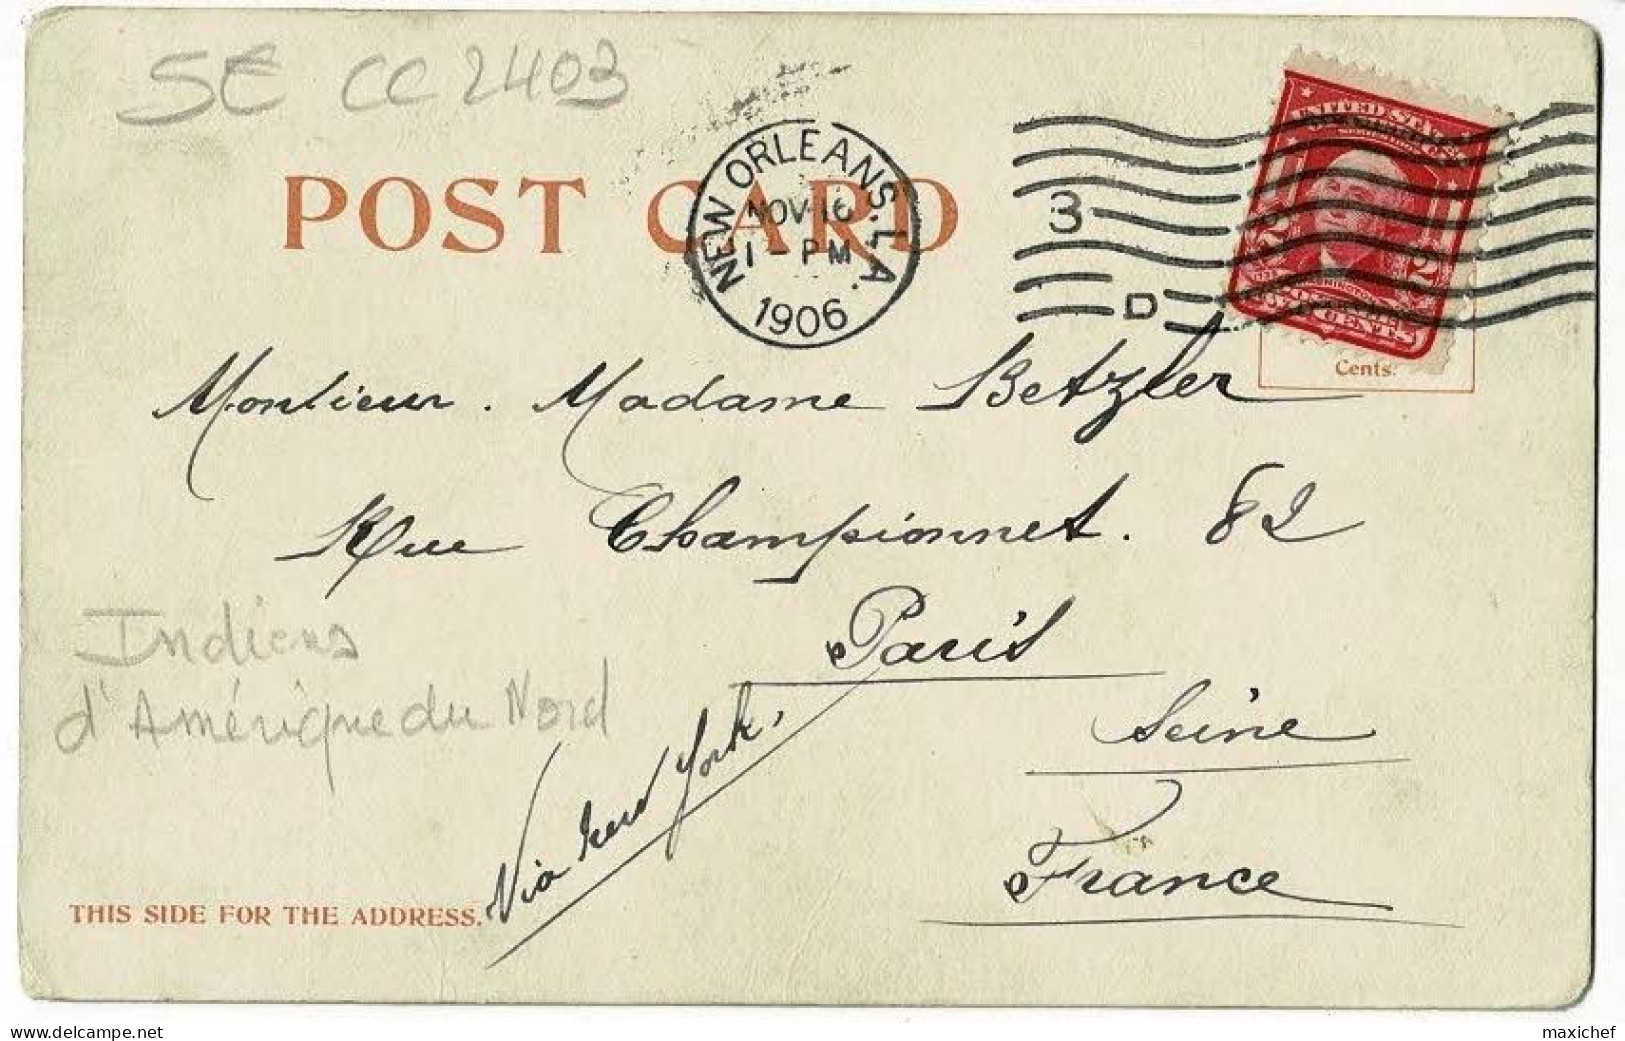 5€ CC 2403
POST CARD
NEW ORLEANS. LA.
NOV 16
1 - PM
1906
3
D
UNITED STATES
2 2
CENTS
Cents.
Monsieur. Madame Betzler
Rue Championnet. 82
Paris
Seine
France
Indiens
d'Amérique du Nord
Via New York,
THIS SIDE FOR THE ADDRESS.
delcampe.net
maxichef